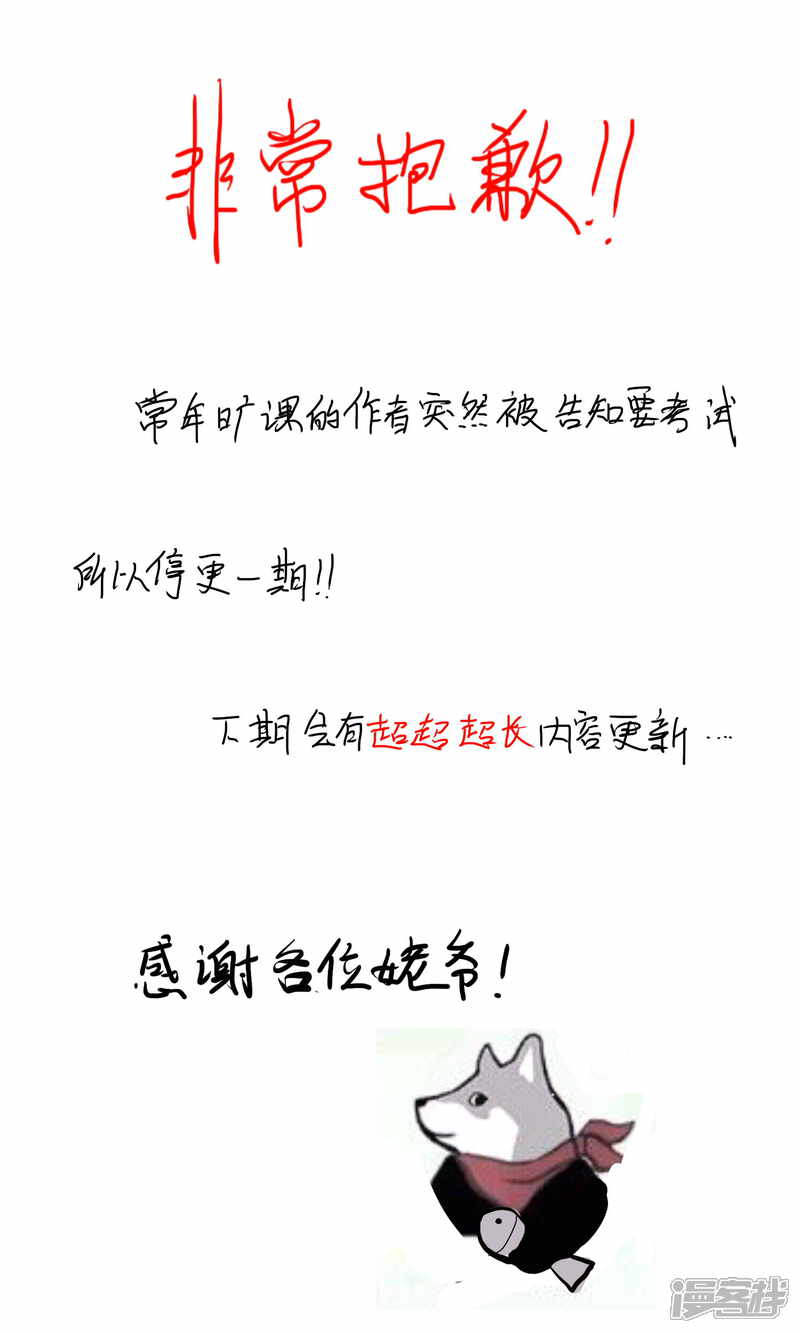 非常抱歉!!
常年旷课的作者突然被告知要考试
所以停更一期!!
下期会有超超超长内容更新…
感谢各位姥爷!
漫客栈